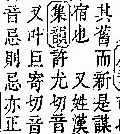 其舊而新是謀
宿也 又姓漢
集韻許尤切音
又叶巨寄切音
音忌則忌亦正